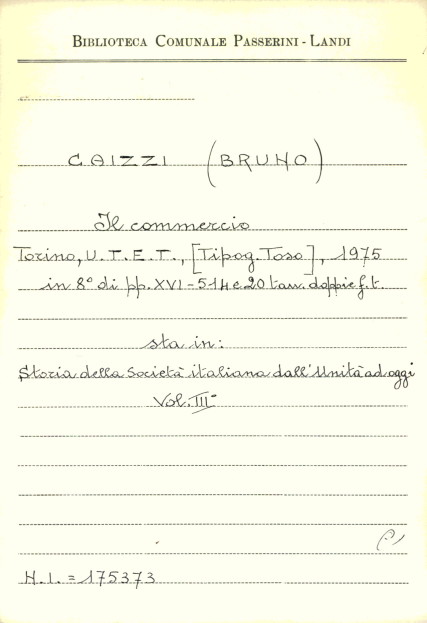 BIBLIOTECA COMUNALE PASSERINI - LANDI
CAIZZI (BRUNO)
Il commercio
Torino, U.T.E.T., [Tipog. Toso], 1975
in 8° di pp. XVI - 514 e 20 tav. doppie f.t.
sta in:
Storia della Società italiana dall'Unità ad oggi
Vol. III
H.I. = 175373